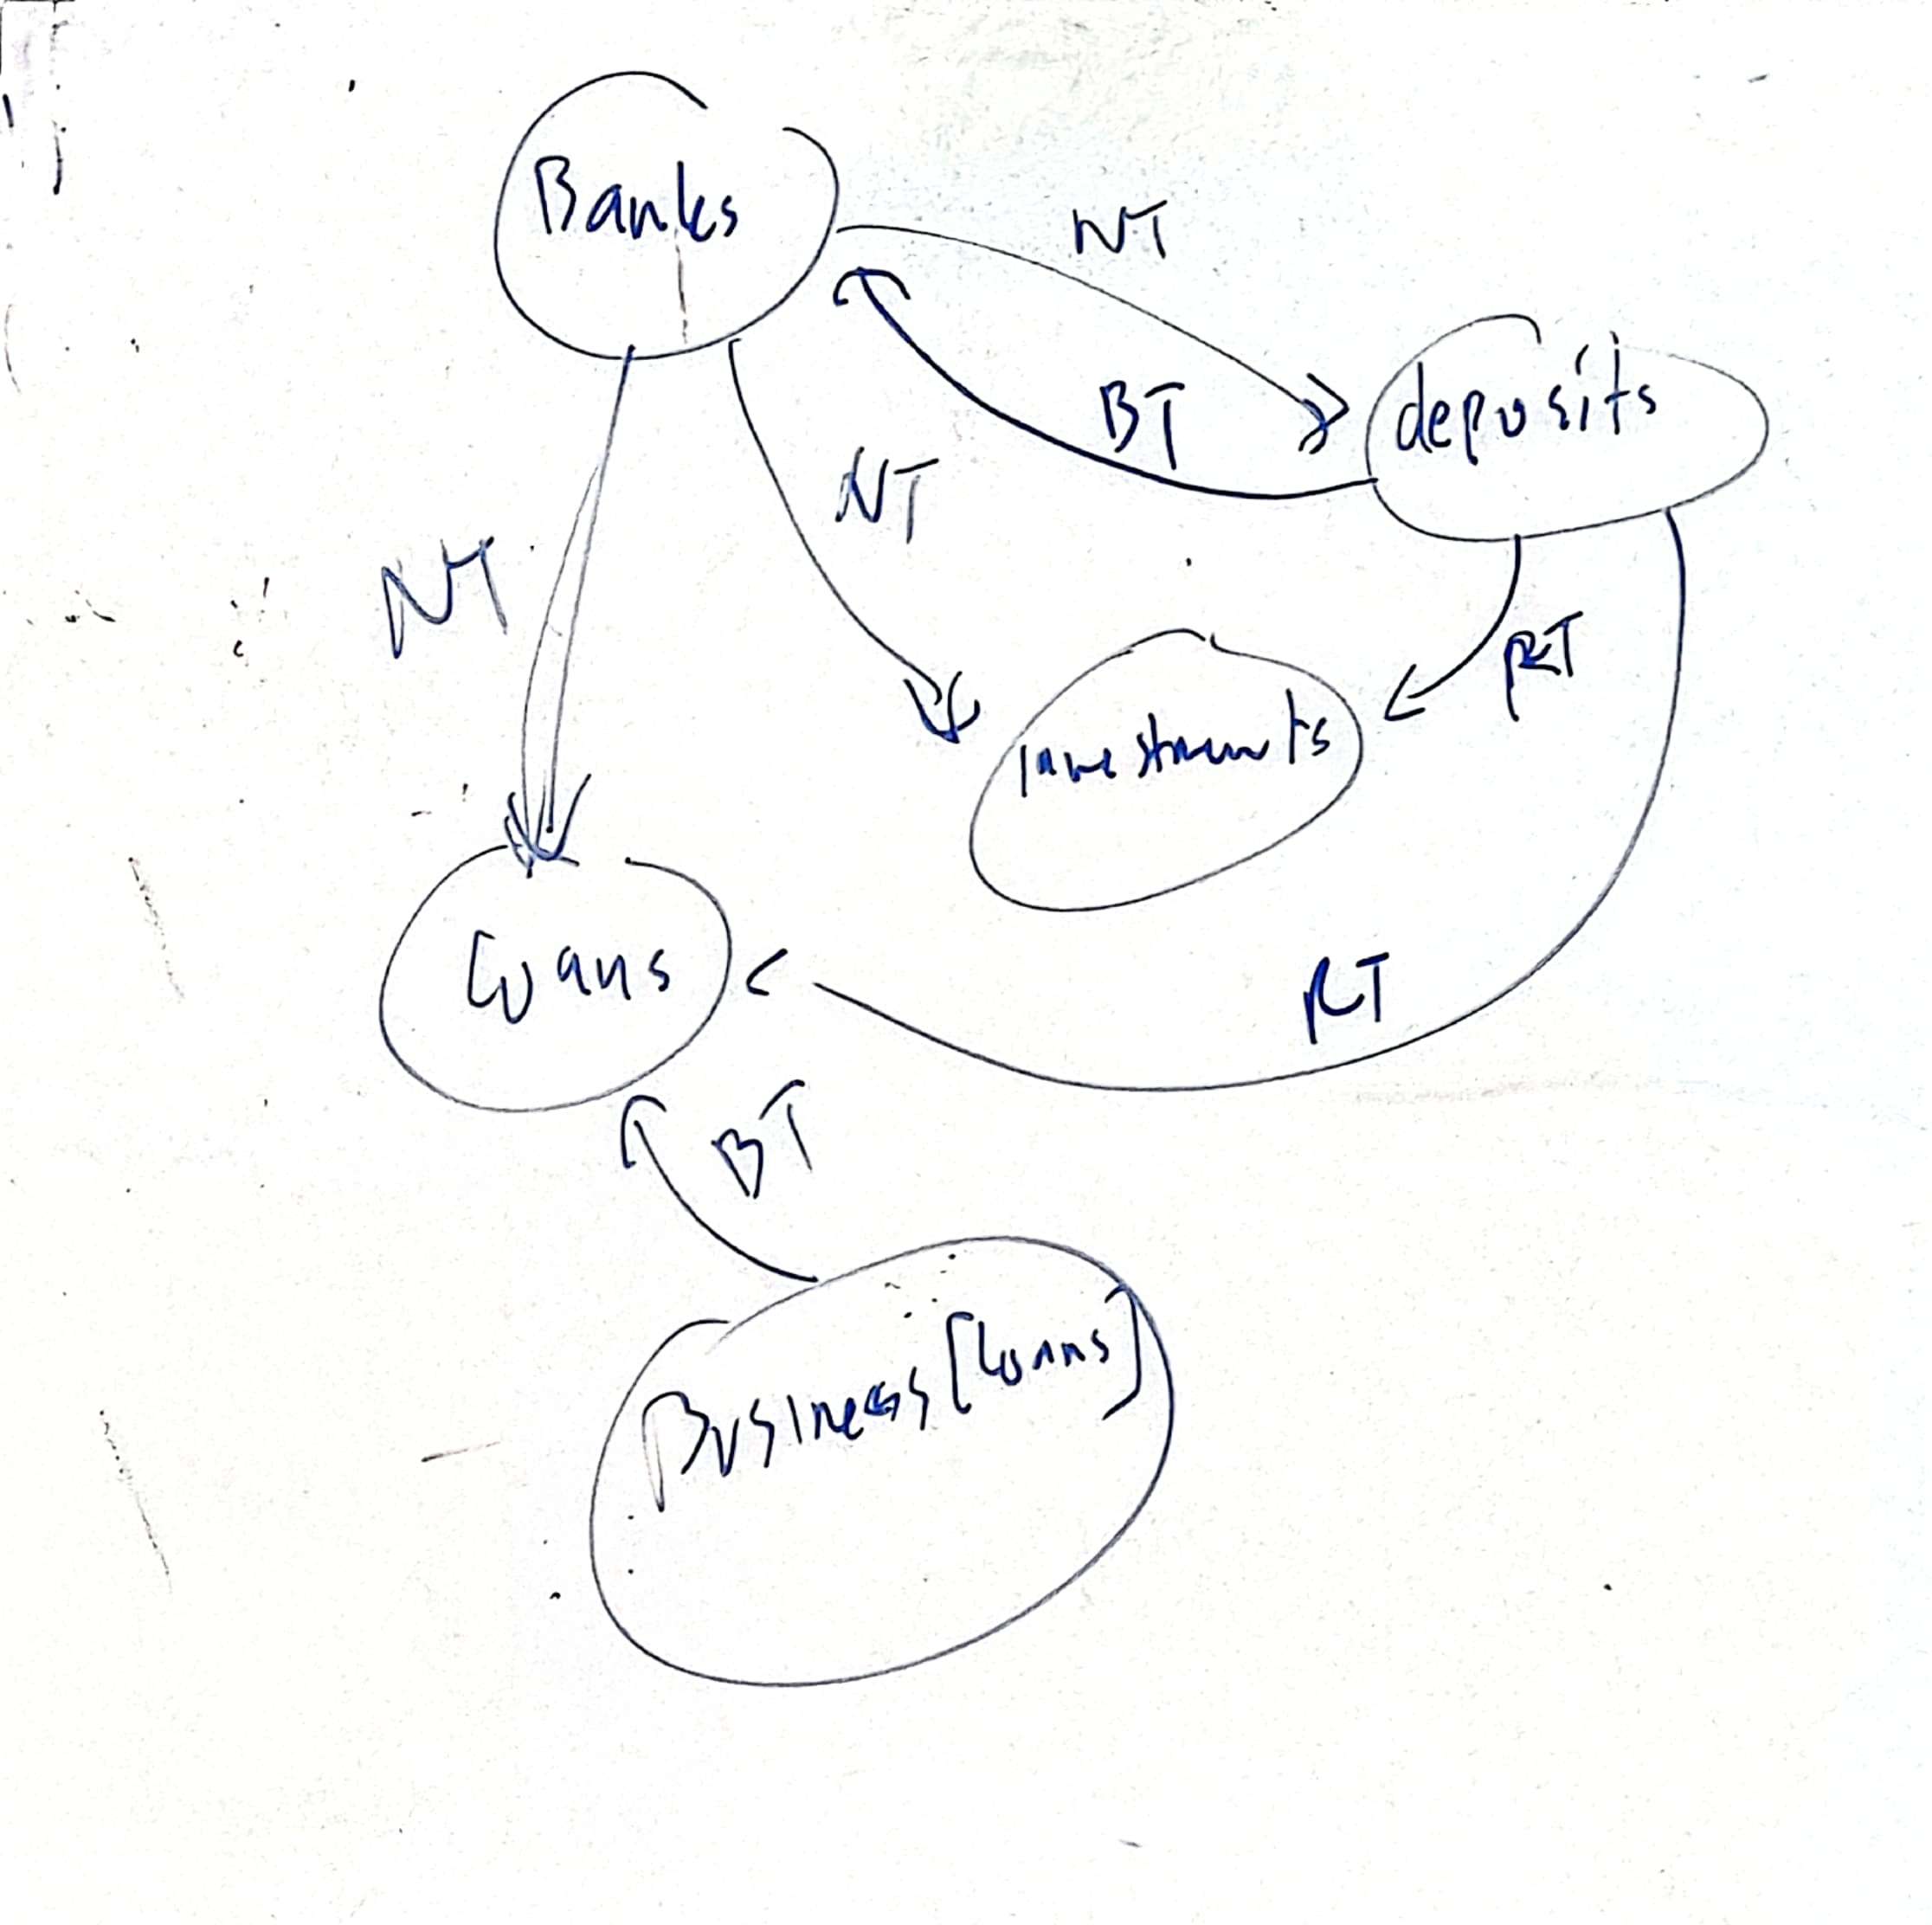 Banks
NT
BT
deposits
NT
NT
RT
Investments
Loans
RT
BT
Business [Loans]